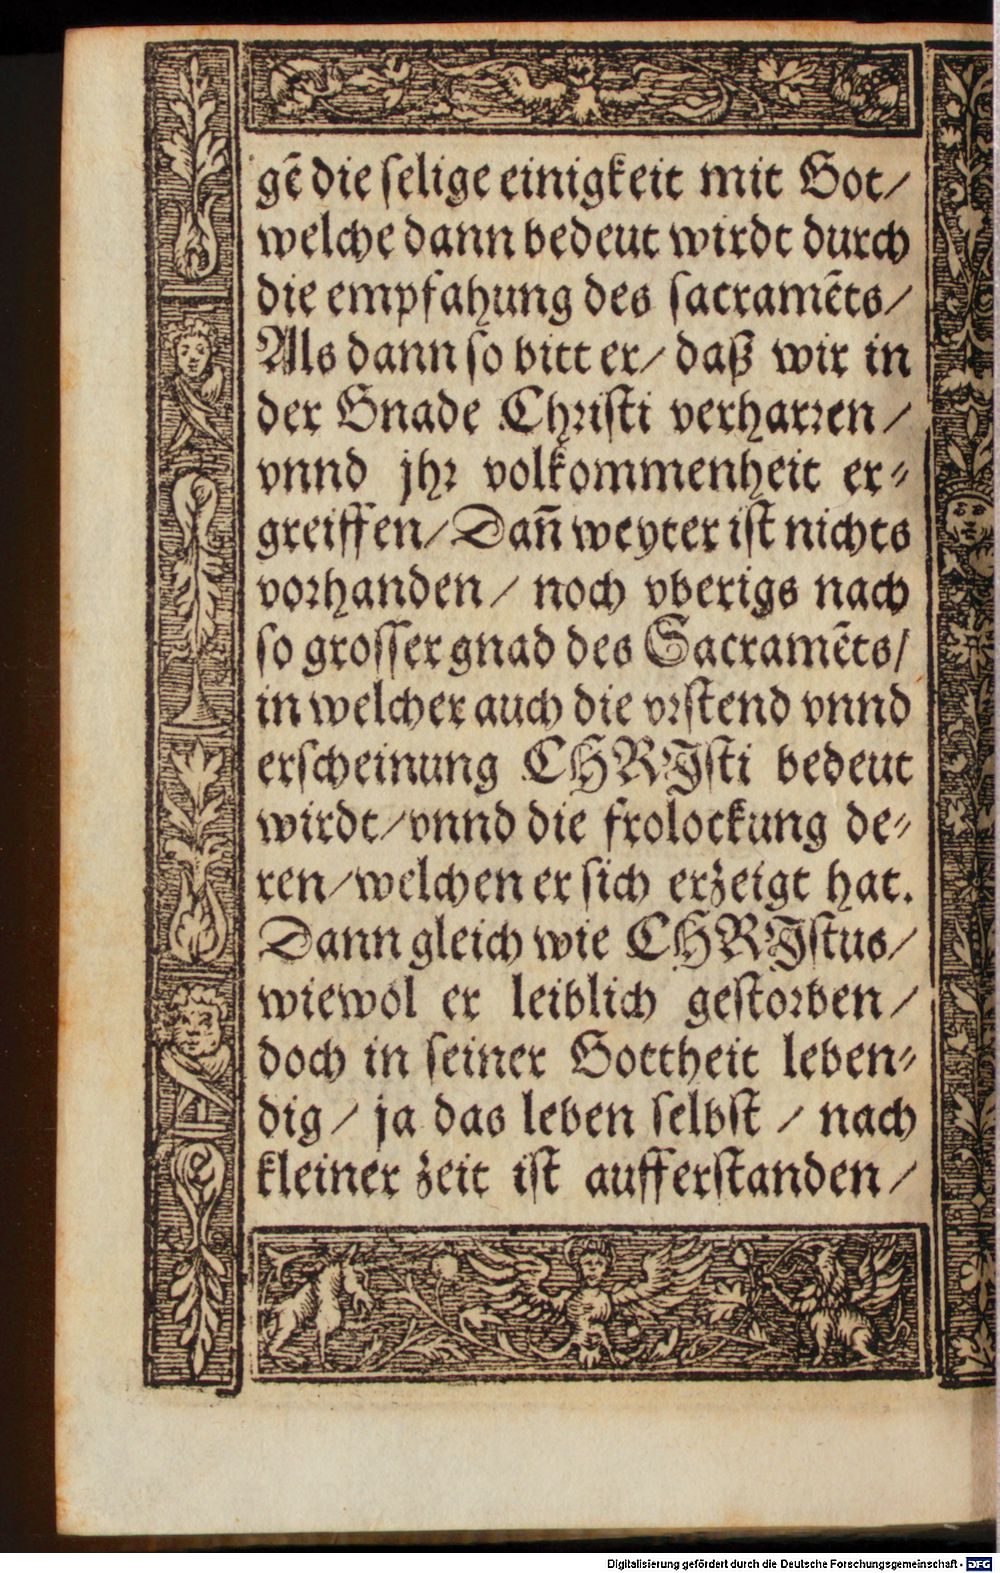 gẽ die ſelige einigkeit mit Got/
welche dann bedeut wirdt durch
die empfahung des ſacramẽts/
Als dann ſo bitt er/ daß wir in
der Gnade Chꝛiſti verharꝛen/
vnnd jhꝛ volkommenheit er⸗
greiffen/ Dañ weyter iſt nichts
voꝛhanden/ noch vberigs nach
ſo groſſer gnad des Sacramẽts/
in welcher auch die vꝛſtend vnnd
erſcheinung CHRJſti bedeut
wirdt/ vnnd die frolockung de⸗
ren/ welchen er ſich erzeigt hat.
Dann gleich wie CHRJſtus/
wiewol er leiblich geſtoꝛben/
doch in ſeiner Gottheit leben⸗
dig/ ja das leben ſelbſt/ nach
kleiner zeit iſt aufferſtanden/
Digitalisierung gefördert durch die Deutsche Forschungsgemeinschaft - DFG